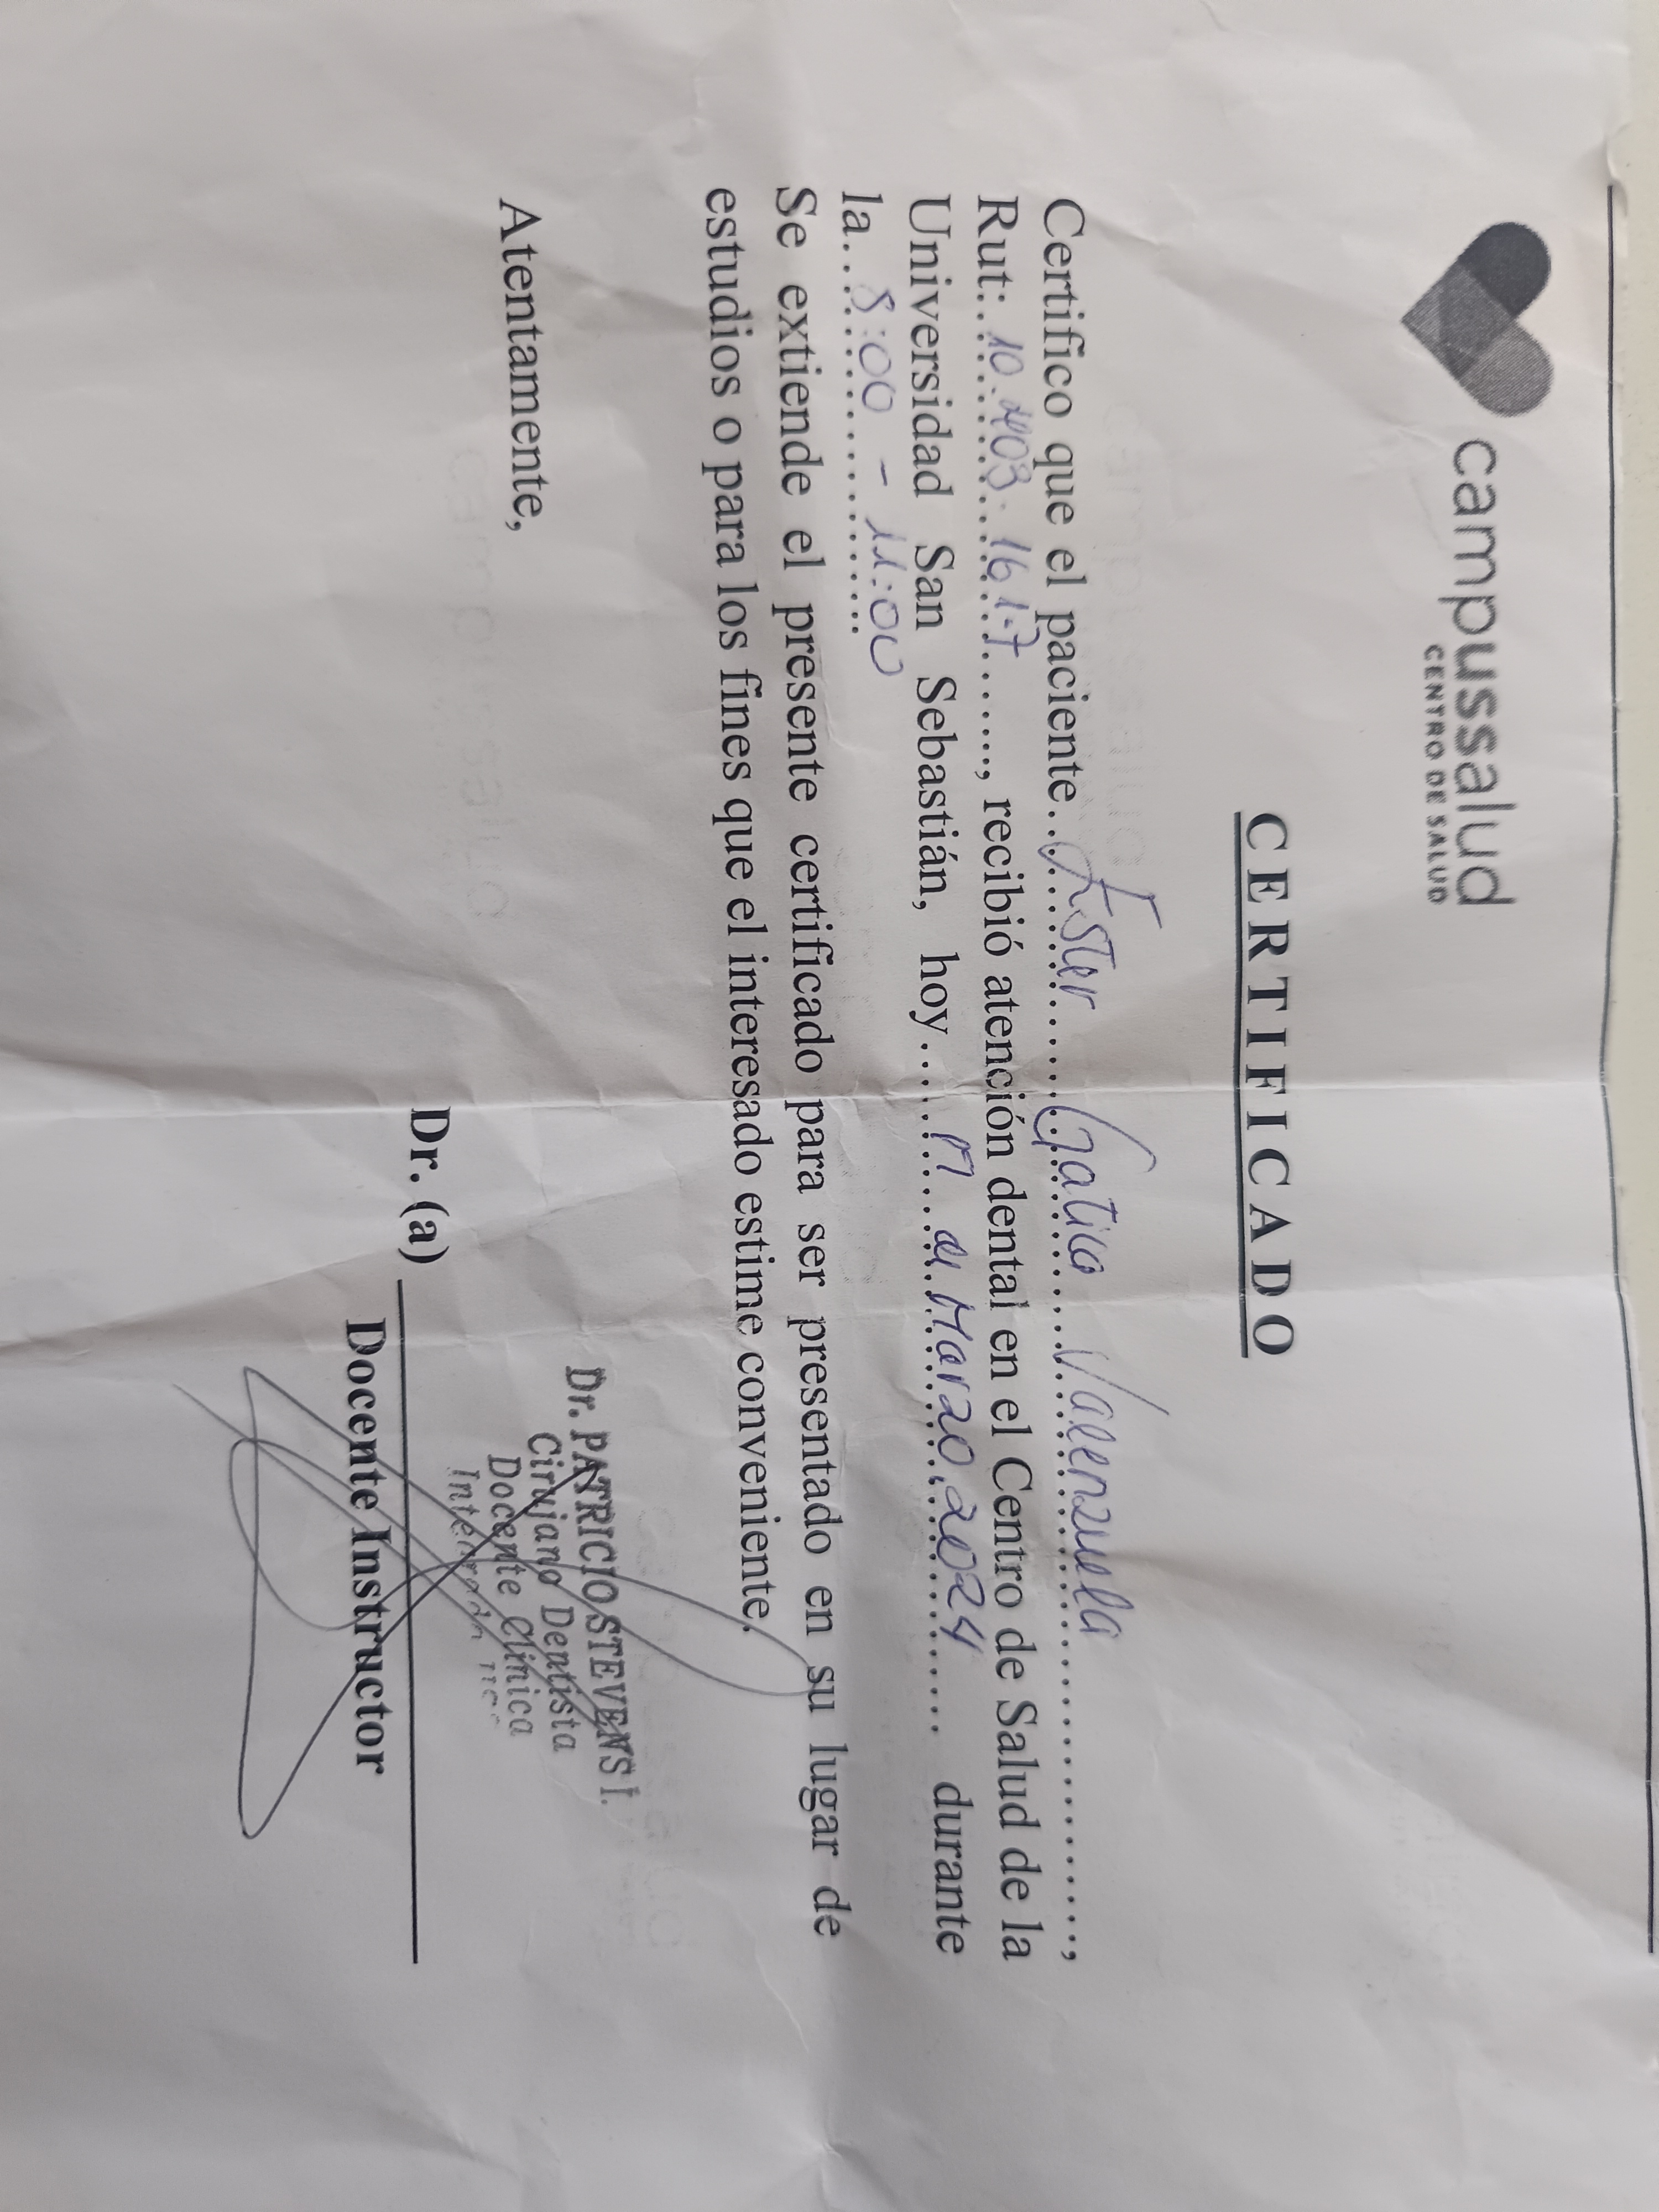 campussalud
CENTRO DE SALUD
CERTIFICADO
Certifico que el paciente...Ester Gatica Valenzuela...,
Rut:.10.403.161-7......., recibió atención dental en el Centro de Salud de la
Universidad San Sebastián, hoy... de Marzo 2024... durante
la...8:00 - 11:00
Se extiende el presente certificado para ser presentado en su lugar de
estudios o para los fines que el interesado estime conveniente.
Atentamente,
Dr. PATRICIO STEVENS I.
Cirujano Dentista
Docente Clínica
Dr. (a)
Docente Instructor